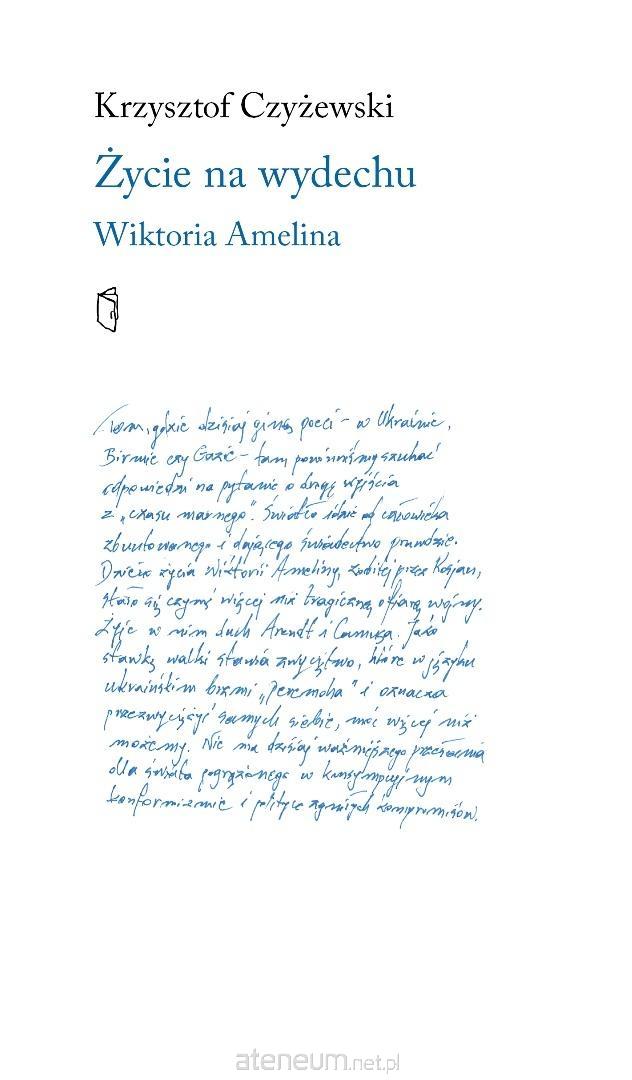 Krzysztof Czyżewski
Życie na wydechu
Wiktoria Amelina
Tam, gdzie dzisiaj giną poeci – w Ukrainie,
Birmie czy Gazie – tam powinniśmy szukać
odpowiedzi na pytanie o drogę wyjścia
z „czasu marnego”. Światło idzie od człowieka
zbuntowanego i dającego świadectwo prawdzie.
Dzieło życia Wiktorii Ameliny, zabitej przez Rosjan,
stało się czymś więcej niż tragiczną ofiarą wojny.
Żyje w nim duch Arendt i Camusa. Jako
stawkę walki stawia zwycięstwo, które w języku
ukraińskim brzmi „Peremoha” i oznacza
przezwyciężyć samych siebie, móc więcej niż
możemy. Nie ma dzisiaj ważniejszego przesłania
dla świata pogrążonego w konsumpcyjnym
konformizmie i polityce zgniłych kompromisów.
ateneum.net.pl